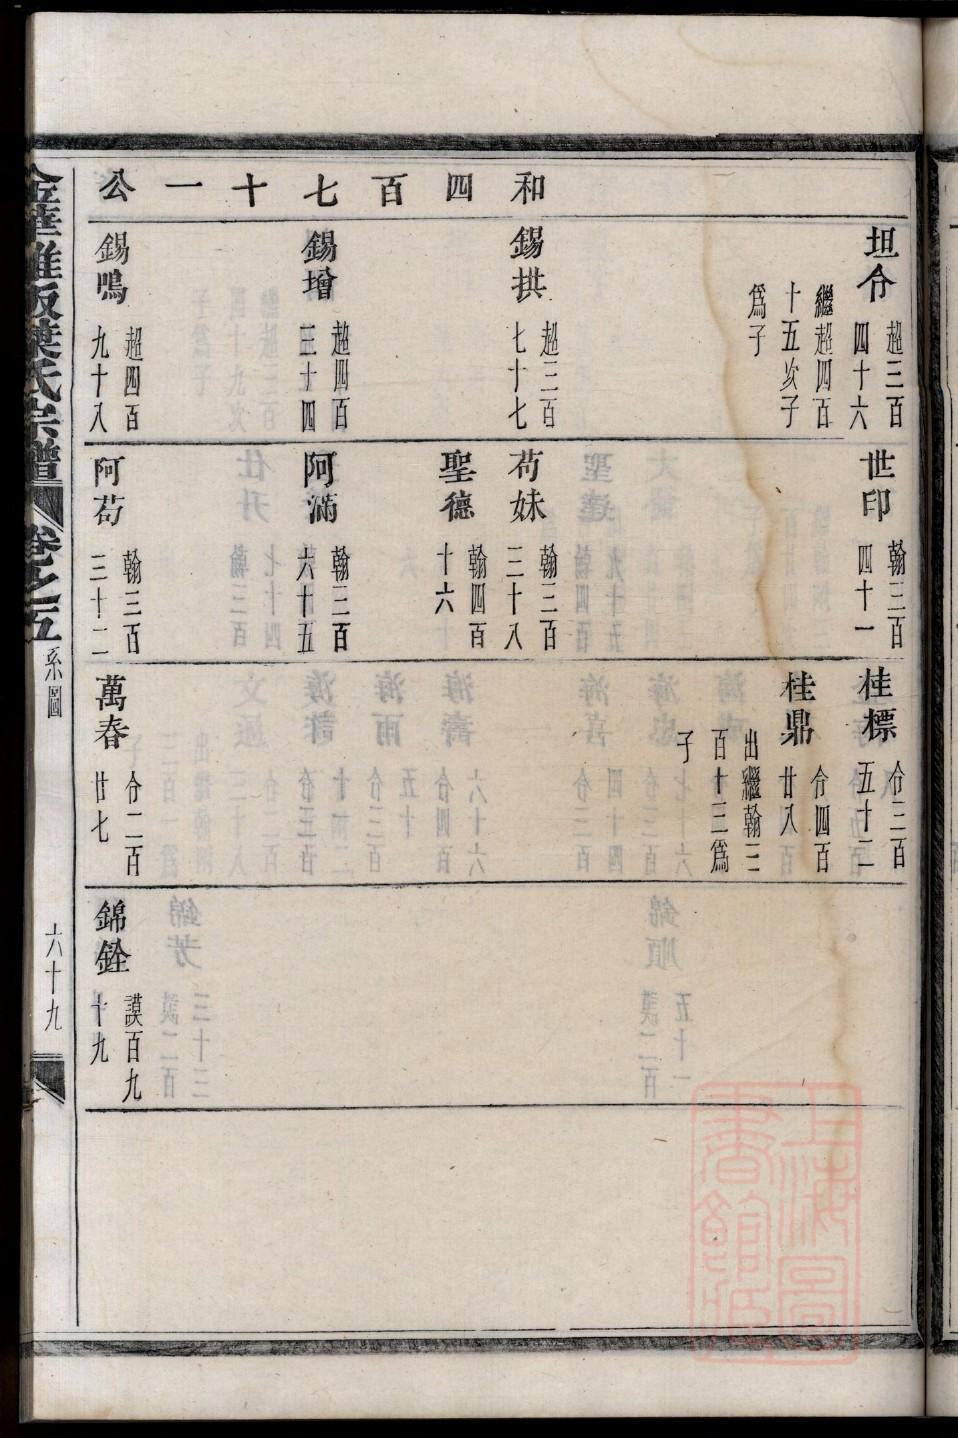 和四百七十一公
坦令 超三百四十六
繼超四百十五次子爲子
錫拱 超三百七十七
錫增 超四百三十四
錫鳴 超四百九十八
世印 翰三百四十一
苟妹 翰三百三十八
聖德 翰四百十六
阿滿 翰三百六十五
阿苟 翰三百三十二
桂標 令三百五十二
桂鼎 令四百廿八
出繼翰三百十三爲子
萬春 令二百廿七
錦銓 謨百九十九
葉氏宗譜
卷之五
系圖
六十九
上海圖書館藏